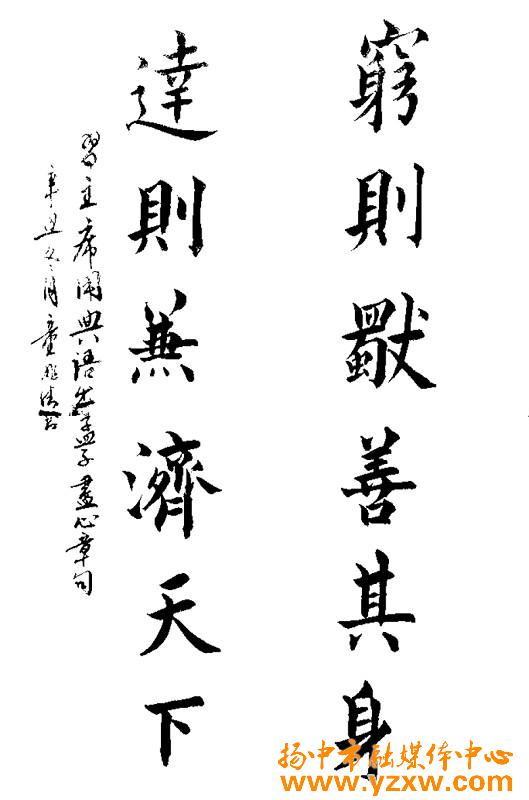 窮則獨善其身
達則兼濟天下
習主席用典語出孟子盡心章句
辛丑冬月童
扬中市融媒体中心
www.yzxw.com